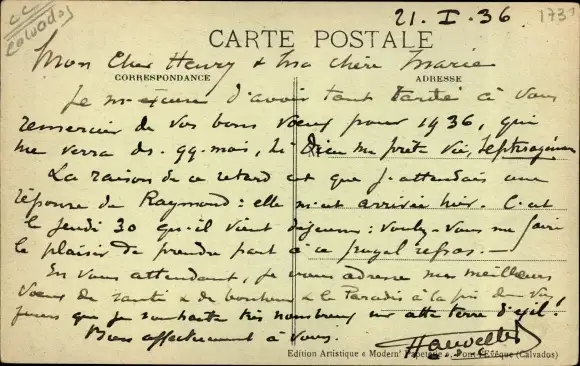 cc
Calvados
21. I. 36
173
CARTE POSTALE
Mon Cher Henry & Ma chère Marie
CORRESPONDANCE
ADRESSE
Je m'excuse d'avoir tant tardé à vous
remercier de vos bons vœux pour 1936, qui
me verra ds. qq. mois, si Dieu me prête vie, septuagénaire
La raison de ce retard est que j'attendais une
réponse de Raymond : elle m'est arrivée hier. C'est
le jeudi 30 qu'il vient déjeuner : voulez-vous me faire
le plaisir de prendre part à ce frugal repas. —
En vous attendant, je vous adresse mes meilleurs
vœux de santé & de bonheur & le Paradis à la fin de vos
jours que je souhaite très nombreux sur cette terre d'exil !
Bien affectueusement à vous.
Edition Artistique « Modern' Papeterie », Pont-l'Evêque (Calvados)